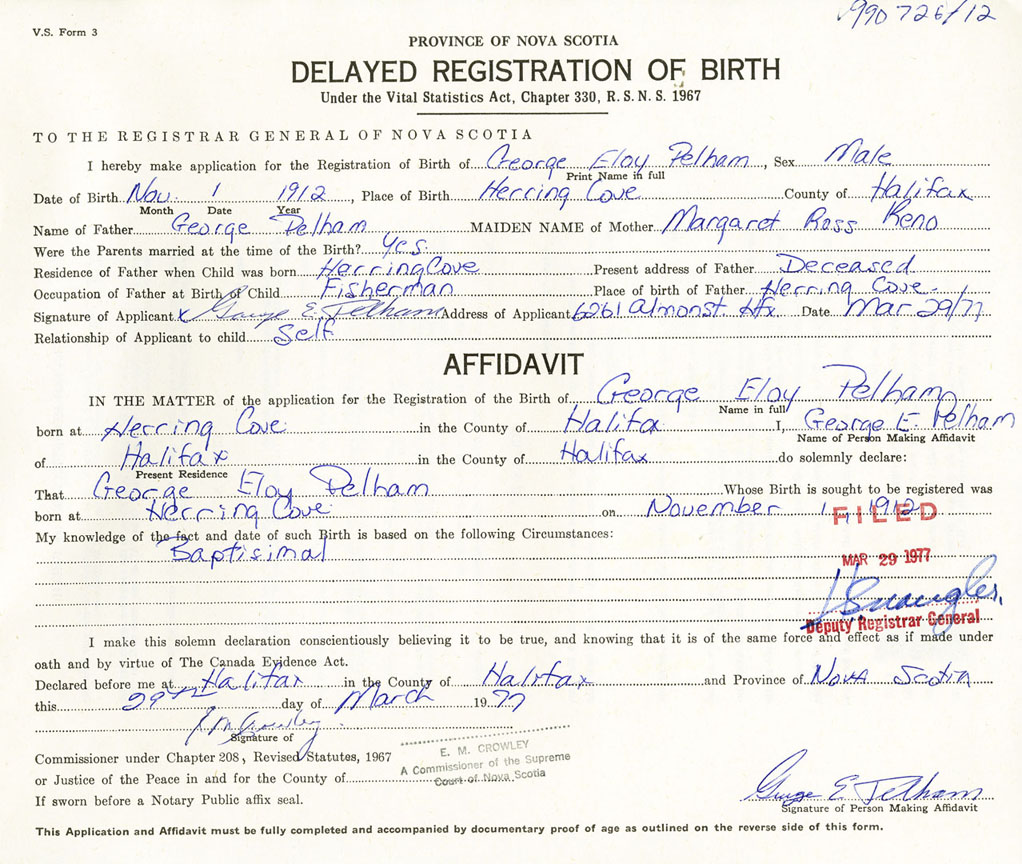 990726/12
V.S. Form 3
PROVINCE OF NOVA SCOTIA
DELAYED REGISTRATION OF BIRTH
Under the Vital Statistics Act, Chapter 330, R. S. N. S. 1967
TO THE REGISTRAR GENERAL OF NOVA SCOTIA
I hereby make application for the Registration of Birth of George Eloy Pelham, Sex Male
Print Name in full
Date of Birth Nov. 1 1912, Place of Birth Herring Cove County of Halifax
Month Date Year
Name of Father George Pelham MAIDEN NAME of Mother Margaret Ross Reno
Were the Parents married at the time of the Birth? Yes.
Residence of Father when Child was born Herring Cove Present address of Father Deceased
Occupation of Father at Birth of Child Fisherman Place of birth of Father Herring Cove.
Signature of Applicant x George E. Pelham Address of Applicant 6261 Almonst. Hfx. Date Mar 29/77
Relationship of Applicant to child Self
AFFIDAVIT
IN THE MATTER of the application for the Registration of the Birth of George Eloy Pelham
Name in full
born at Herring Cove in the County of Halifax I, George E. Pelham
Name of Person Making Affidavit
of Halifax in the County of Halifax do solemnly declare:
Present Residence
That George Eloy Pelham Whose Birth is sought to be registered was
born at Herring Cove on November 1, 1912
FILED
My knowledge of the fact and date of such Birth is based on the following Circumstances:
Baptisimal
MAR 29 1977
Deputy Registrar General
I make this solemn declaration conscientiously believing it to be true, and knowing that it is of the same force and effect as if made under
oath and by virtue of The Canada Evidence Act.
Declared before me at Halifax in the County of Halifax and Province of Nova Scotia
this 29th day of March 1977
E M Crowley
Signature of
Commissioner under Chapter 208, Revised Statutes, 1967
E. M. CROWLEY
A Commissioner of the Supreme
Court of Nova Scotia
or Justice of the Peace in and for the County of
If sworn before a Notary Public affix seal.
George E. Pelham
Signature of Person Making Affidavit
This Application and Affidavit must be fully completed and accompanied by documentary proof of age as outlined on the reverse side of this form.